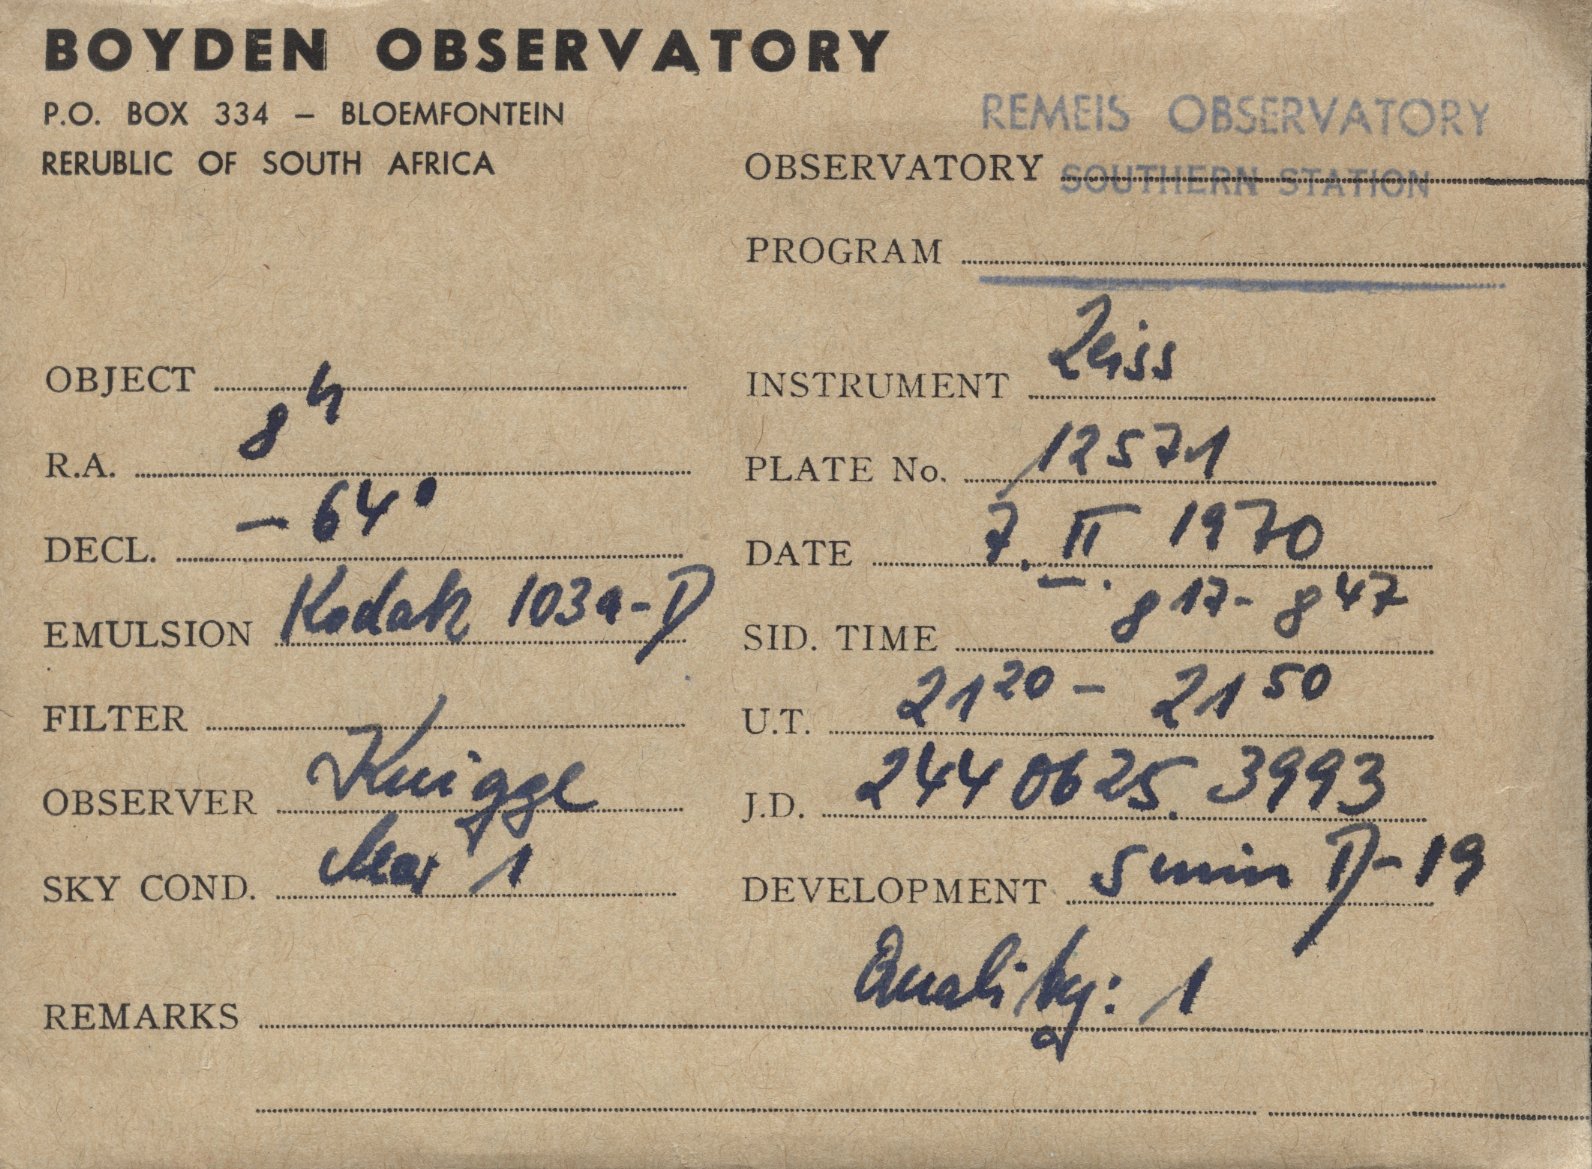 BOYDEN OBSERVATORY
P.O. BOX 334 – BLOEMFONTEIN
RERUBLIC OF SOUTH AFRICA
REMEIS OBSERVATORY
OBSERVATORY SOUTHERN STATION
PROGRAM
OBJECT
INSTRUMENT Zeiss
R.A. 8h
PLATE No. 12571
DECL. –64°
DATE 7. II. 1970
EMULSION Kodak 103a-D
SID. TIME 8 17 - 8 47
FILTER
U.T. 21 20 – 21 50
OBSERVER Knigge
J.D. 244 0625. 3993
SKY COND. clear 1
DEVELOPMENT 5 min D-19
Quality: 1
REMARKS